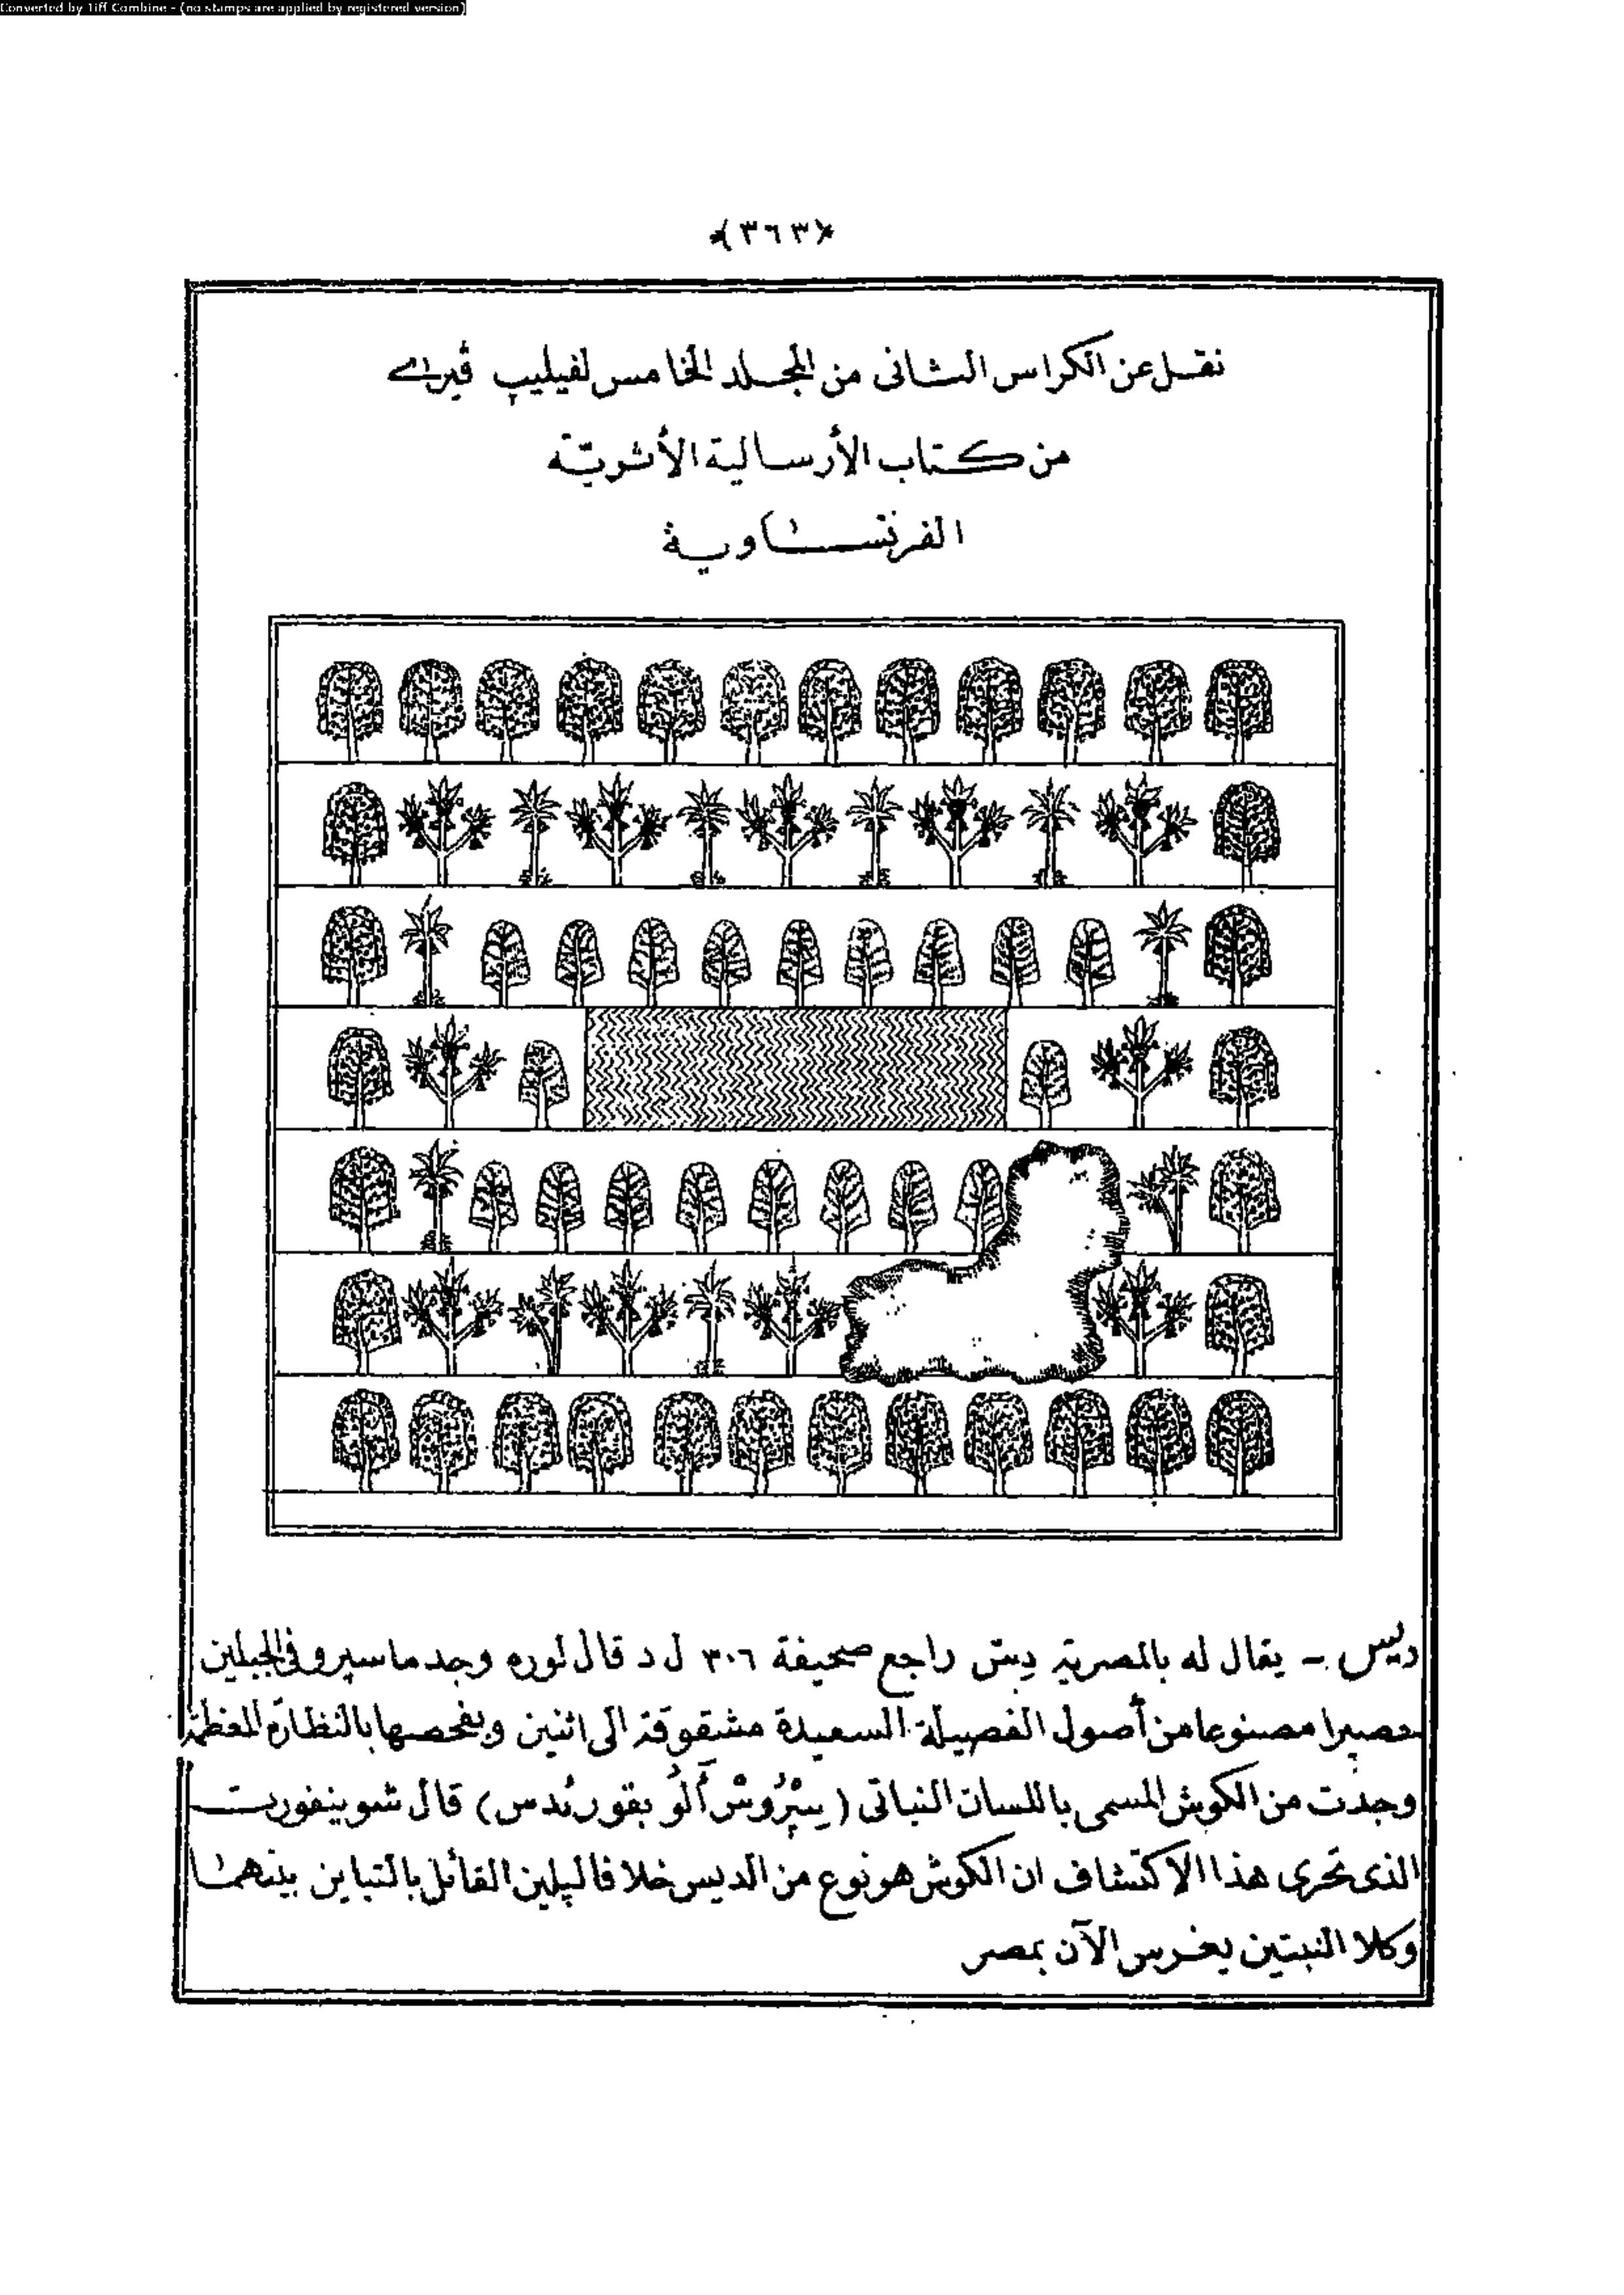 Converted by Tiff Combine - (no stamps are applied by registered version)
﴿٣٦٣﴾
نقل عن الكراس الثانى من المجلد الخامس لفيليپ ڤيراى
من كتاب الأرسالية الأثريّة
الفرنساوية
ديس - يقال له بالمصرية دِيسْ راجع صحيفة ٣٠٦ ل د قال لوره وجد ماسپرو فى الجبلين
حصيرا مصنوعا من أصول الفصيلة السعيدة مشقوقة الى اثنين وبفحصها بالنظارة المعظمة
وجدت من الكوش المسمى باللسان النباتى (سِپْرُوسْ أَلُو بقورندس) قال شوينفورت
الذى تحرى هذا الاكتشاف ان الكوش هو نوع من الديس خلافا لپلين القائل بالتباين بينهما
وكلا النبتين يغرس الآن بمصر